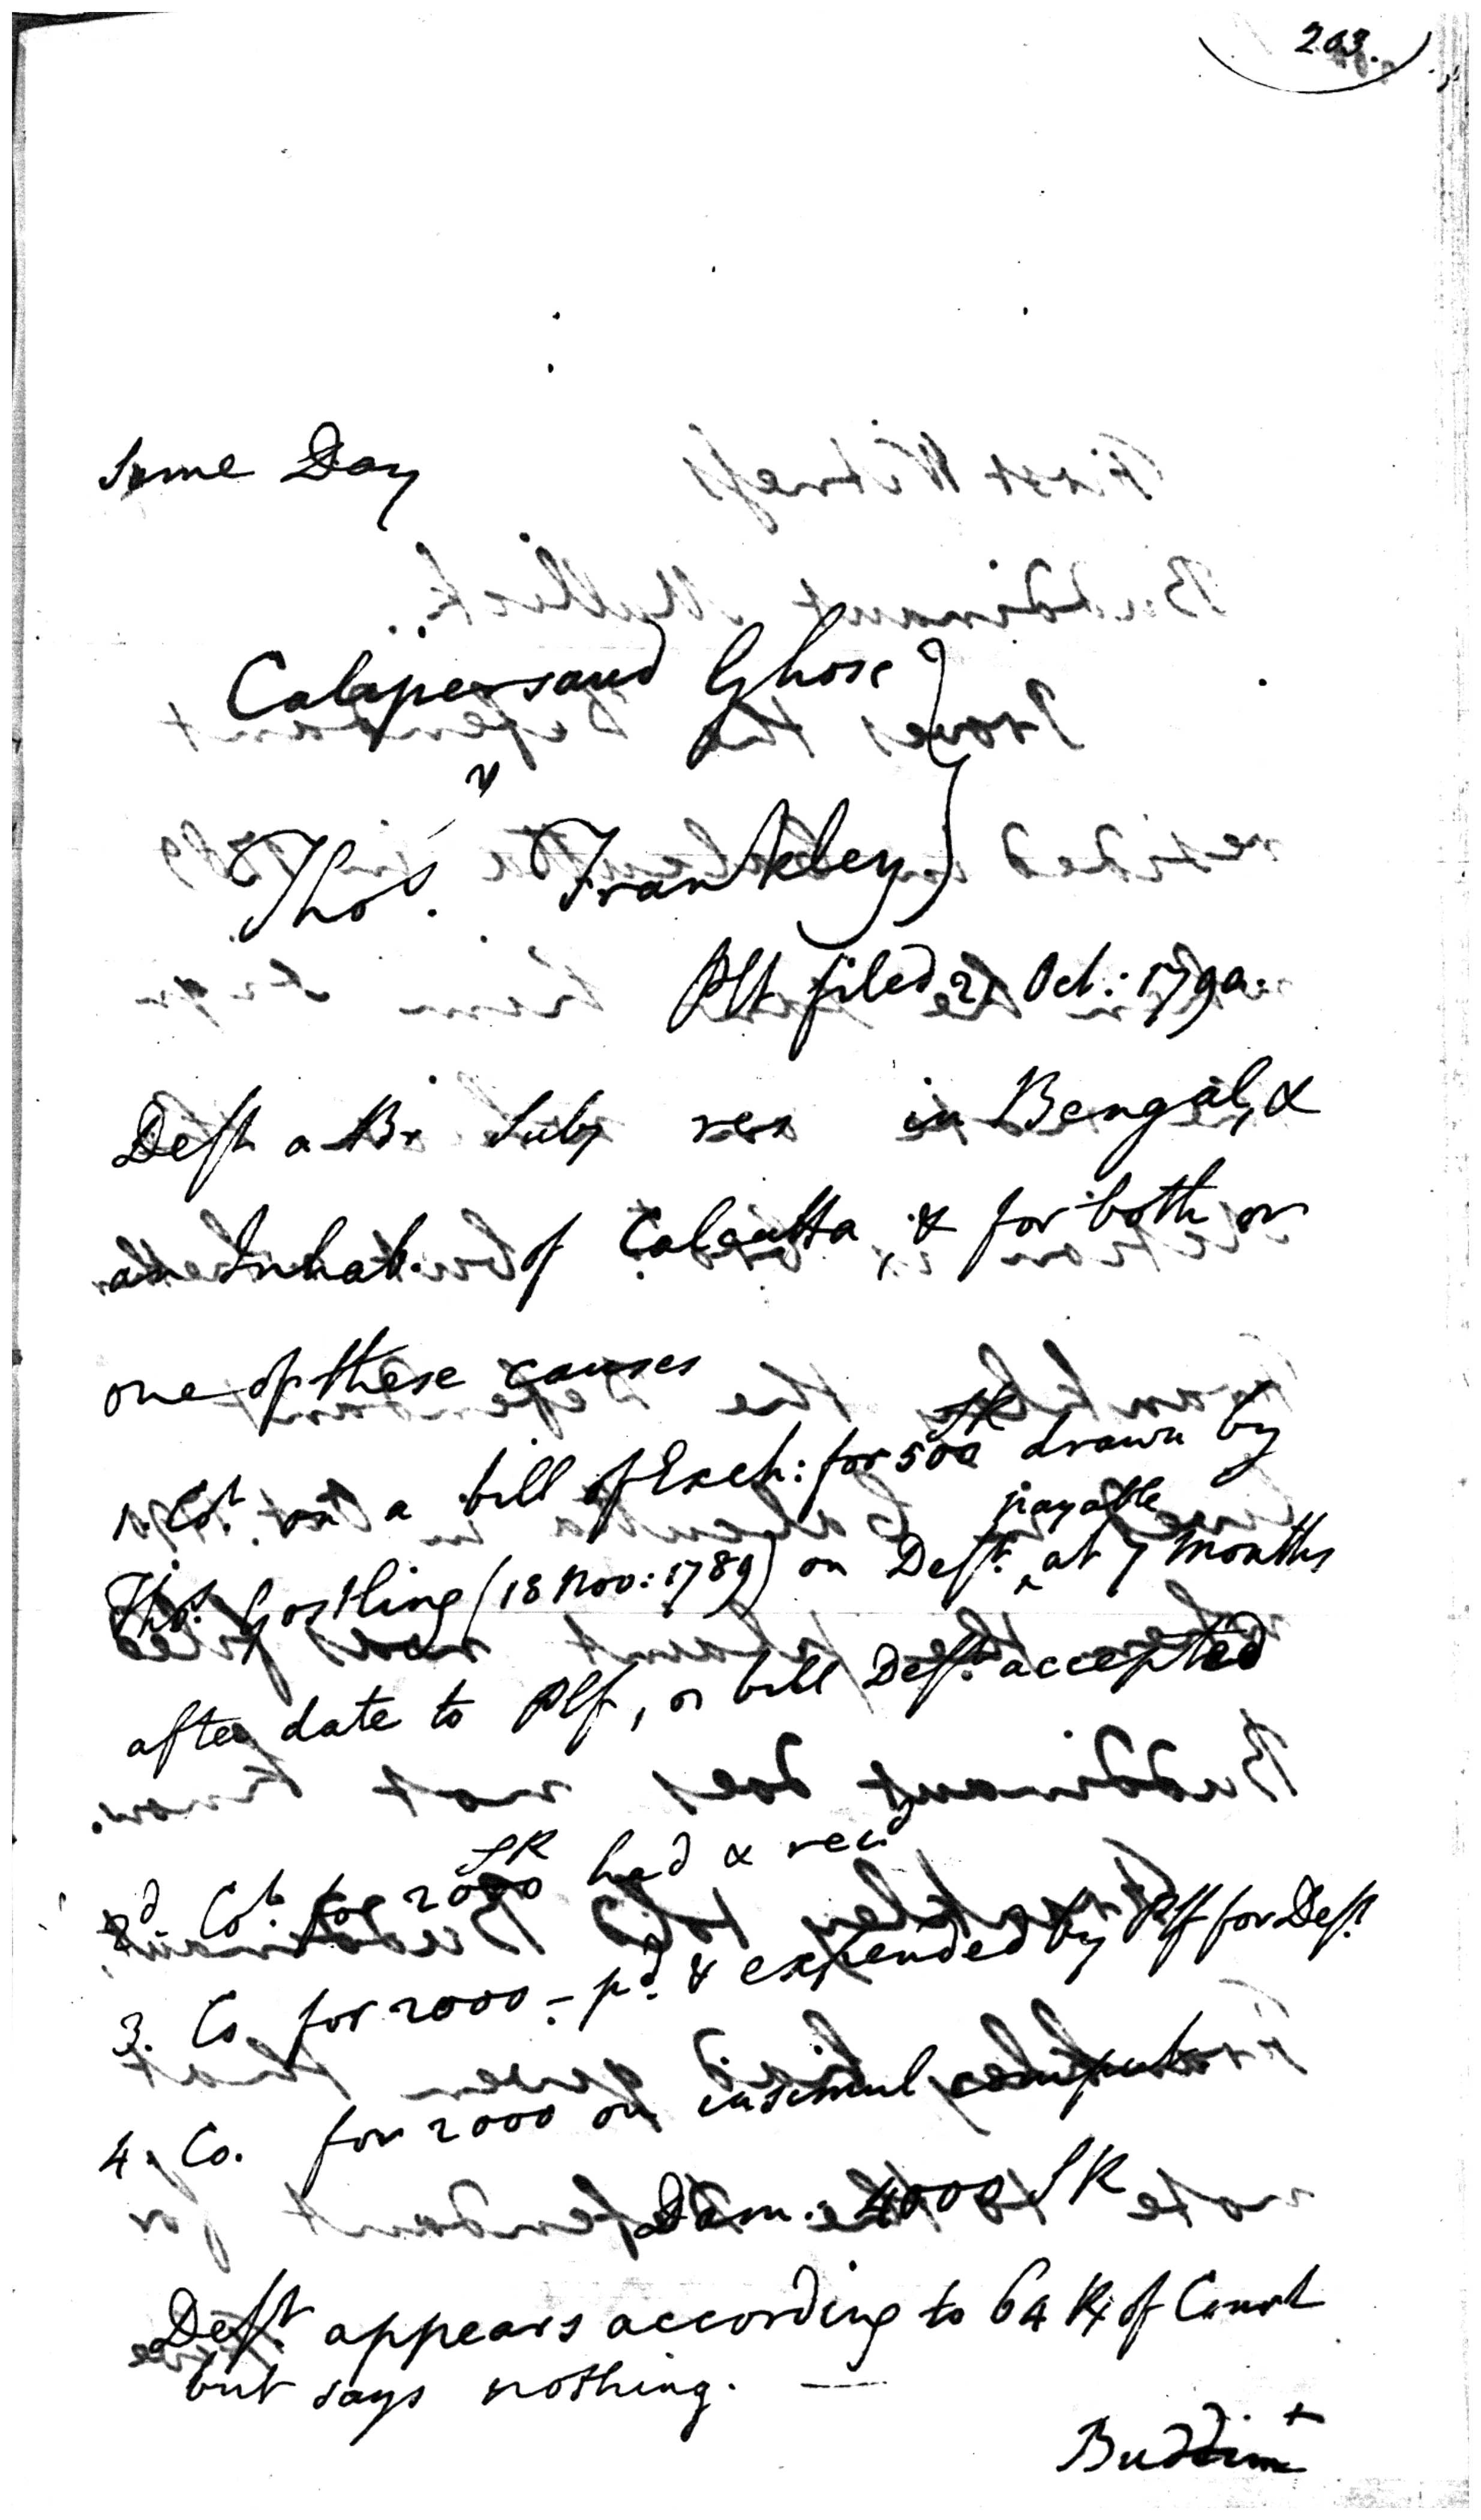 203.
Same Day
Calapersaud Ghose
v
Thos. Frankley
Plt filed 21 Oct: 1790.
Deft a Br. Subj res in Bengal, &
an Inhab. of Calcutta, & for both or
one of these causes
1. Ct. on a bill of Exch: for 500 SR drawn by
Thos. Gostling (18 Nov: 1789) on Deft. payable at 7 months
after date to Plf, or bill Deft. accepted
2d. Ct. for 2000 SR had & recd
3. Co. for 2000 - pd. & expended by Plf for Deft.
4. Co. for 2000 on insimul comput
Dam. 4000 SR
Deft. appears according to 64 R of Court
but says nothing. —
Buddint